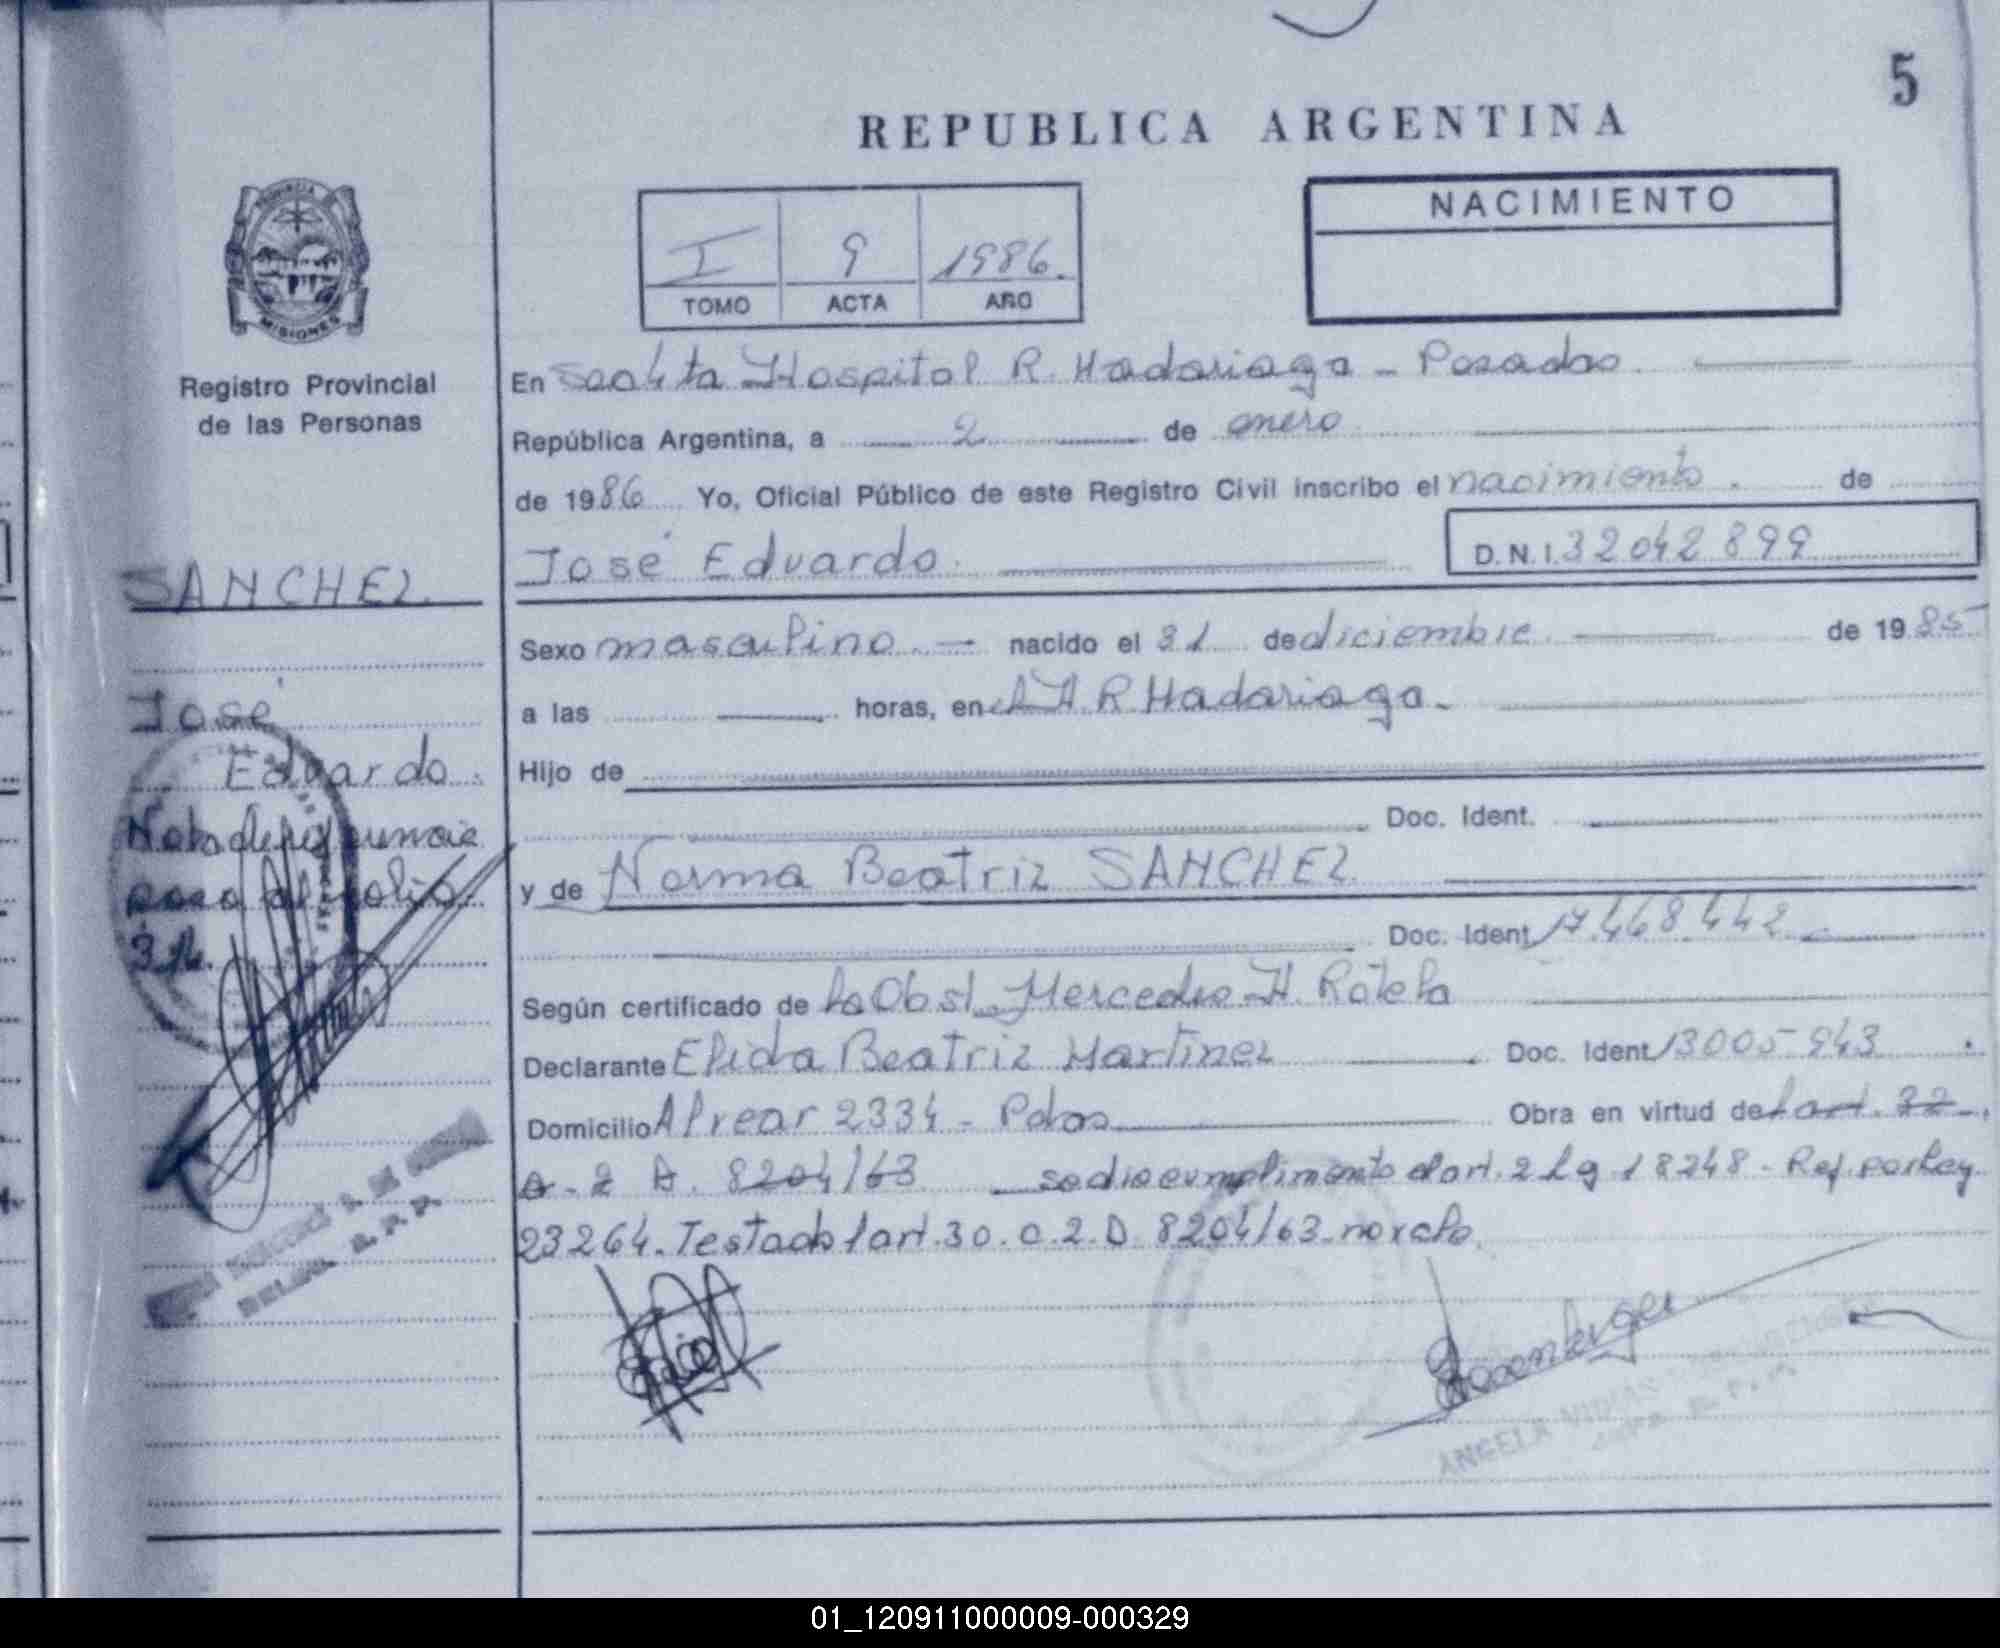 5
REPUBLICA ARGENTINA
NACIMIENTO
I 9 1986.
TOMO ACTA AÑO
PROVINCIA
MISIONES
Registro Provincial
de las Personas
En Hospital R. Madariaga - Posadas.
República Argentina, a 2 de enero
de 1986 Yo, Oficial Público de este Registro Civil inscribo el nacimiento. de
José Eduardo. D.N.I. 32042899
SANCHEZ.
Sexo masculino. nacido el 31 de diciembre de 1985
José
Eduardo.
a las horas, en el H. R Madariaga.
Hijo de
Doc. Ident.
y de Norma Beatriz SANCHEZ
Doc. Ident 17.468.442
Nota de
pasa al folio
314.
Según certificado de la Obst. Mercedes H. Rotela
Declarante Elida Beatriz Martinez Doc. Ident 13005943
Domicilio Alvear 2334 - Pdas Obra en virtud del art.
8204/63 se dio cumplimiento al art. 2 Lg 18248 - Ref. por Ley
23264. Testado: art. 30. C. 2. D. 8204/63. no vale.
ANGELA
01_120911000009-000329